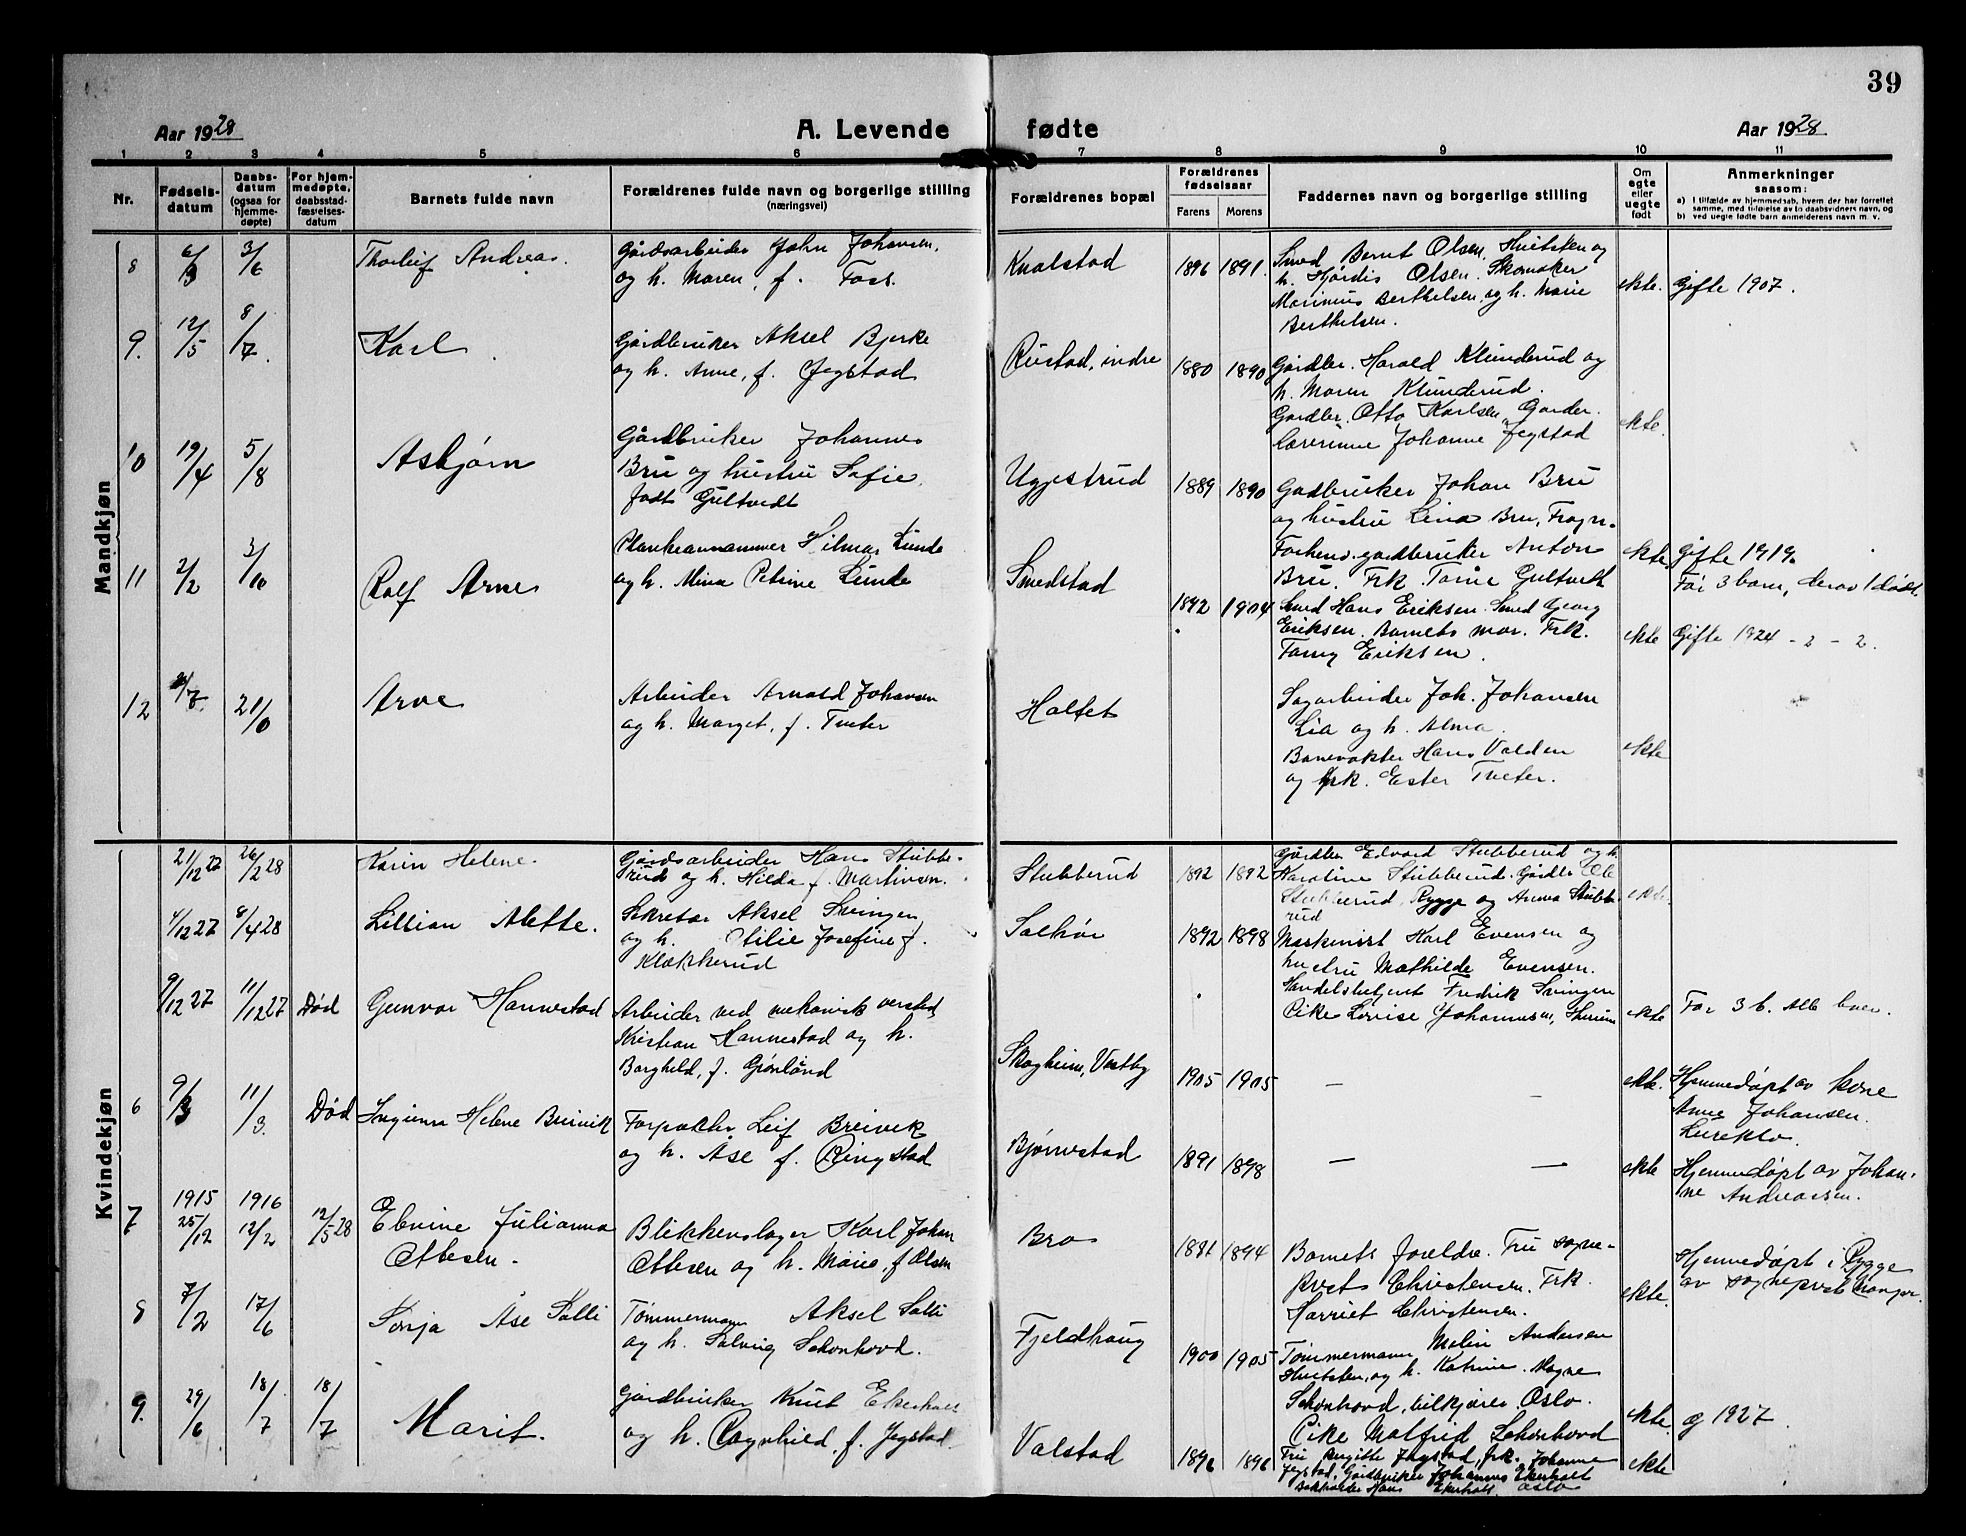 39
Aar 1928
A. Levende fødte
Aar 1928
1 2 3 4 5 6 7 8 9 10 11
Nr.
Fødsels-
datum
Daabs-
datum
(ogsaa for
hjemme-
døpte)
For hjem-
medøpte,
daabsstad-
fæstelses-
datum
Barnets fulde navn
Forældrenes fulde navn og borgerlige stilling
(næringsvei)
Forældrenes bopæl
Forældrenes
fødselsaar
Farens Morens
Faddernes navn og borgerlige stilling
Om
egte
eller
uegte
født
Anmerkninger
saasom:
a) I tilfælde av hjemmedaab, hvem der har forrettet
samme, med tilføielse av to daabsvidners navn, og
b) ved uegte fødte barn anmelderens navn m. v.
Mandkjøn
8
6/3
3/6
Thorleif Andreas.
Gårdsarbeider John Johansen,
og h. Maren, f. Foss.
Knalstad
1896 1891.
Smed Bernt Olsen, Hvitsten og
h. Hjørdis Olsen. Skomaker
Marinius Berthelsen og h. Marie
Berthelsen.
ekte.
Gifte 1907.
9.
12/5
8/7.
Karl
Gårdbruker Aksel Bjerke
og h. Anne, f. Jegstad
Rustad, indre
1880 1890
Gårdbr. Harald Klunderud og
h. Maren Klunderud.
Gardbr. Otto Karlsen, Garder.
Lærerinne Johanne Jegstad
ekte.
10
19/4
5/8
Asbjørn
Gårdbruker Johannes
Bru og hustru Sofie,
født Gultvedt
Uggestrud
1889 1890
Gadbruker Johan Bru
og hustru Lina Bru, Frogn.
Forhenv. gardbruker Anton
Bru. Frk. Torine Gultvedt
ekte
Gifte 1919.
Før 3 barn, derav 1 dødt.
11
2/2
3/10
Rolf Arne
Plankeannammer Hilmar Lunde
og h. Mina Petrine Lunde
Smedstad
1892 1904
Smed Hans Eriksen. Smed Georg
Eriksen. Barnets mor. Frk.
Fanny Eriksen.
ekte
Gifte 1924 - 2 - 2.
12
/7.
21/0
Arve
Arbeider Arnold Johansen
og h. Marget, f. Tveter
Haltet
Sagarbeider Joh. Johansen
Lia og h. Alma.
Banevakter Hans Valden
og frk. Ester Tveter.
ekte
Kvindekjøn
21/12 27
26/2 28
Karin Helene.
Gårdsarbeider Hans Stubbe-
rud og h. Hilda f. Martinsen.
Stubberud
1892 1892
Gårdbr. Edvard Stubberud og h.
Karoline Stubberud. Gårdbr. Ole
Stubberud, Rygge og Anna Stubbe-
rud
ekte.
4/12 27
8/4 28
Lillian Alette.
Sekretær Aksel Svingen,
og h. Otilie Josefine f.
Klokkerud
Solhøi
1892 1898
Maskinist Karl Evensen og
hustru Mathilde Evensen.
Handelsbetjent Fredrik Svingen
Pike Lovise Johannesen,
ekte
Før 3 b. Alle lever.
9/12 27
11/12 27
Død
Gunvor Hannestad
Arbeider ved mekanisk versted
Kristian Hannestad og h.
Borghild, f. Grønlånd
Skogheim, Vestby
1905 1905
—
ekte.
Hjemmedøpt av kone
Anna Johansen.
6
9/3
11/3.
Død
Ingunn Helene Breivik
Forpakter Leif Breivik
og h. Åse f. Ringstad
Bjørnestad
1891 1898
— —
ekte
Hjemmedøpt av Johan-
ne Andreassen.
7
1915
25/12
1916
12/2
12/5 28
Elvine Julianna
Ottesen.
Blikkenslager Karl Johan
Ottesen og h. Marie, f. Olsen
Bro
1891 1894
Barnets foreldre. Fru sogne-
prest Christensen. Frk.
Harriet Christensen.
ekte.
Hjemmedøpt i Rygge
av sogneprest
8
7/2
17/6
Sonja Åse Solli
Tømmermann Aksel Solli
og h. Solveig Schonhovd.
Fjeldhaug
1900 1905
Tømmermann Malin Andersen
Hvitsten, og h. Katrine. Magne
Schonhovd, bilkjører Oslo.
Pike Malfrid Schonhovd
ekte.
g 1927.
9.
29/6
18/7
18/7
Marit.
Gårdbruker Knut Ekerholt
og h. Ragnhild, f. Jegstad.
Valstad
1896 1896
Fru Birgitte Jegstad, frk. Johanne
Jegstad, Gårdbruker Johannes Ekerholt
Bokholder Hans Ekerholt. Oslo
ekte